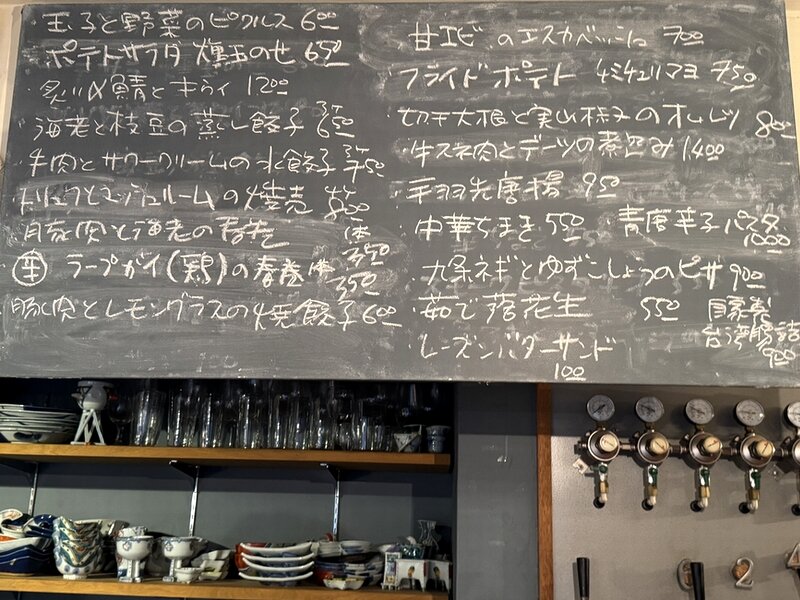 ・玉子と野菜のピクルス 600
・ポテトサラダ 燻玉のせ 650
・炙り〆鯖とキウイ 1200
・海老と枝豆の蒸し餃子 3ヶ 650
・牛肉とサワークリームの水餃子 3ヶ 750
・トリュフとマッシュルームの焼売 4ヶ 800
・豚肉と海老の春巻 1本 350
・辛 ラープガイ(鶏)の春巻 1本 350
・豚肉とレモングラスの焼餃子 600
・甘エビのエスカベッシュ 700
・フライドポテト チミチュリマヨ 750
・切干大根と実山椒のオムレツ 800
・牛スネ肉とデーツの煮込み 1400
・手羽先唐揚 950
・中華ちまき 550
・青唐辛子パスタ 1000
・九条ネギとゆずこしょうのピザ 900
・茹で落花生 550
自家製 台湾腸詰 900
・レーズンバターサンド 100
2